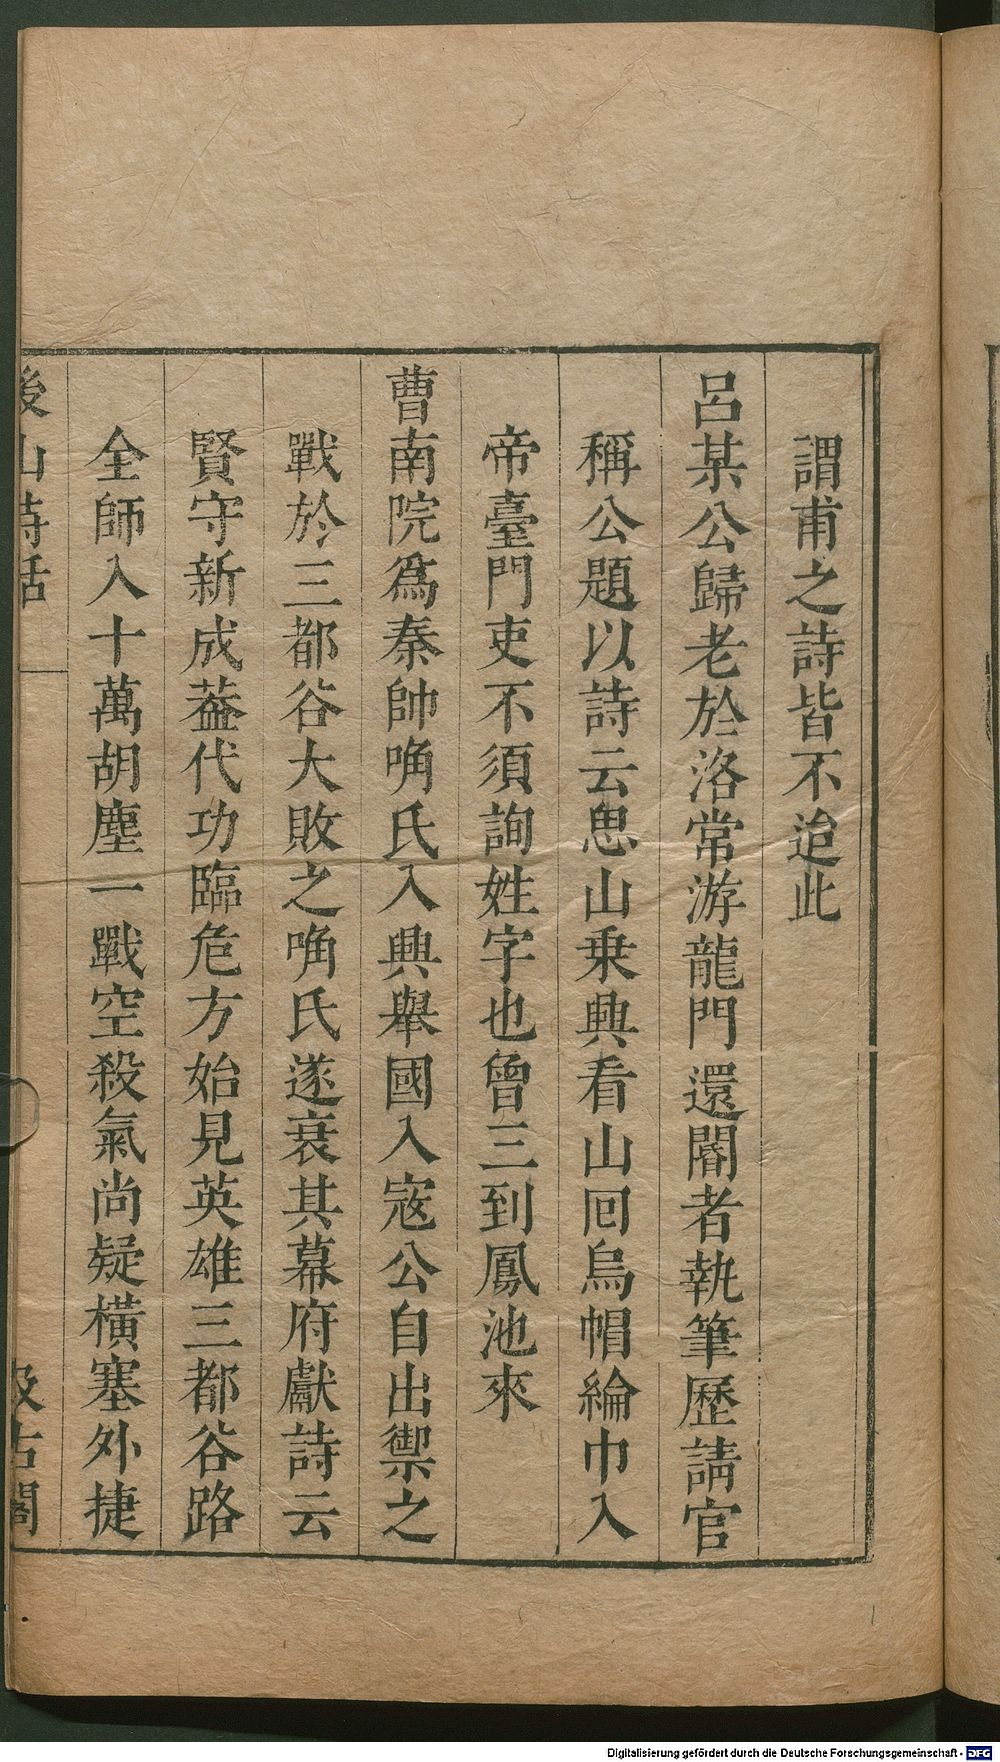 謂甫之詩皆不迨此
呂某公歸老於洛常游龍門還閽者執筆歷請官
稱公題以詩云思山乗興看山回烏帽綸巾入
帝臺門吏不須詢姓字也曾三到鳳池來
曹南院爲秦帥唃氏入興舉國入寇公自出禦之
戰於三都谷大敗之唃氏遂衰其幕府獻詩云
賢守新成葢代功臨危方始見英雄三都谷路
全師入十萬胡塵一戰空殺氣尚疑橫塞外捷
後山詩話
汲古閣
Digitalisierung gefördert durch die Deutsche Forschungsgemeinschaft - DFG